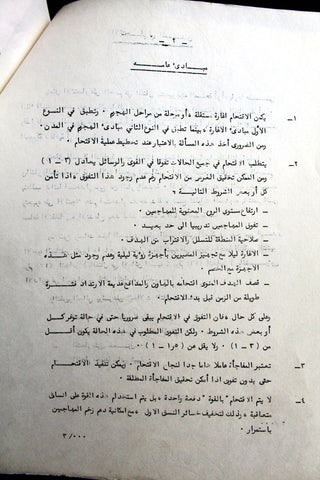 - ٢ -
مبادىء عامه
١- يكون الاقتحام اغارة مستقلة أو مرحلة من مراحل الهجوم ٠ وتطبق في النوع
الأول مبادىء الاغارة ، بينما تطبق في النوع الثاني مبادىء الهجوم في المدن ٠
ومن الضروري أخذ هذه المسألة بالاعتبار عند تخطيط عملية الاقتحام ٠
٢- يتطلب الاقتحام في جميع الحالات تفوقا في القوى والوسائل يعادل (٣ - ١)
ومن الممكن تحقيق الغرض من الاقتحام رغم عدم وجود هذا التفوق ، اذا تأمن
كل أو بعض الشروط التالية :
- ارتفاع مستوى الروح المعنوية للمهاجمين
- تفوق المهاجمين تدريبيا الى حد بعيد ٠
- صلاحية المنطقة للتسلل والاقتراب من الهدف ٠
- الاغارة ليلا مع تجهيز المغيرين بأجهزة رؤية ليلية وعدم وجود مثل هذه
الاجهزة مع الخصم ٠
- قصف الهدف المنوي اقتحامه بالهاون والمدافع عديمة الارتداد فترة
طويلة من الزمن قبل بدء الاقتحام ٠
وعلى كل حال فان التفوق في الاقتحام يبقى ضروريا حتى في حالة توفر كل
أو بعض هذه الشروط ٠ ولكن التفوق المطلوب في هذه الحالة يكون أقل
من (٣ - ١) ولا يقل عن (١٫٥ - ١) ٠
٣- تعتبر المفاجأة عاملا هاما جدا لنجاح الاقتحام ٠ ويمكن تنفيذ الاقتحام
حتى بدون تفوق اذا أمكن تحقيق المفاجأة المطلقة ٠
٤- لا يتم الاقتحام "بالقوة" دفعة واحدة ، بل يتم استخدام هذه القوة على انساق
متعاقبة ، وذلك لتخفيف خسائر النسق الاول ، مع امكانية دعم زخم المهاجمين
باستمرار ٠
٣/٠٠٠